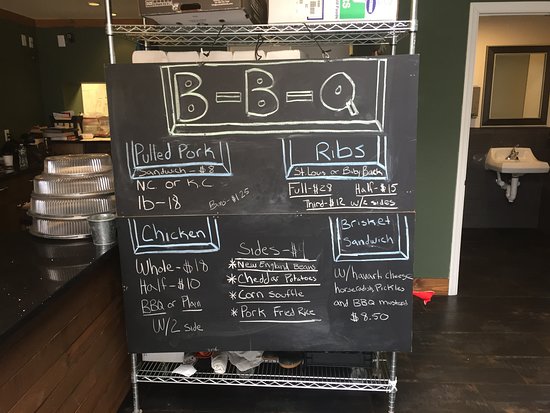 B-B-Q
Pulled Pork
Sandwich-$8
N.C. or K.C.
lb-18
$125
Ribs
St. Louis or Baby Back
Full-$28 Half-$15
Third-$12 w/2 sides
Chicken
Whole-$18
Half-$10
BBQ or Plain
W/2 side
Sides-$4
*New England Beans
*Cheddar Potatoes
*Corn Souffle
*Pork Fried Rice
Brisket
Sandwich
W/havarti cheese
horseradish, Pickles
and BBQ mustard
$8.50